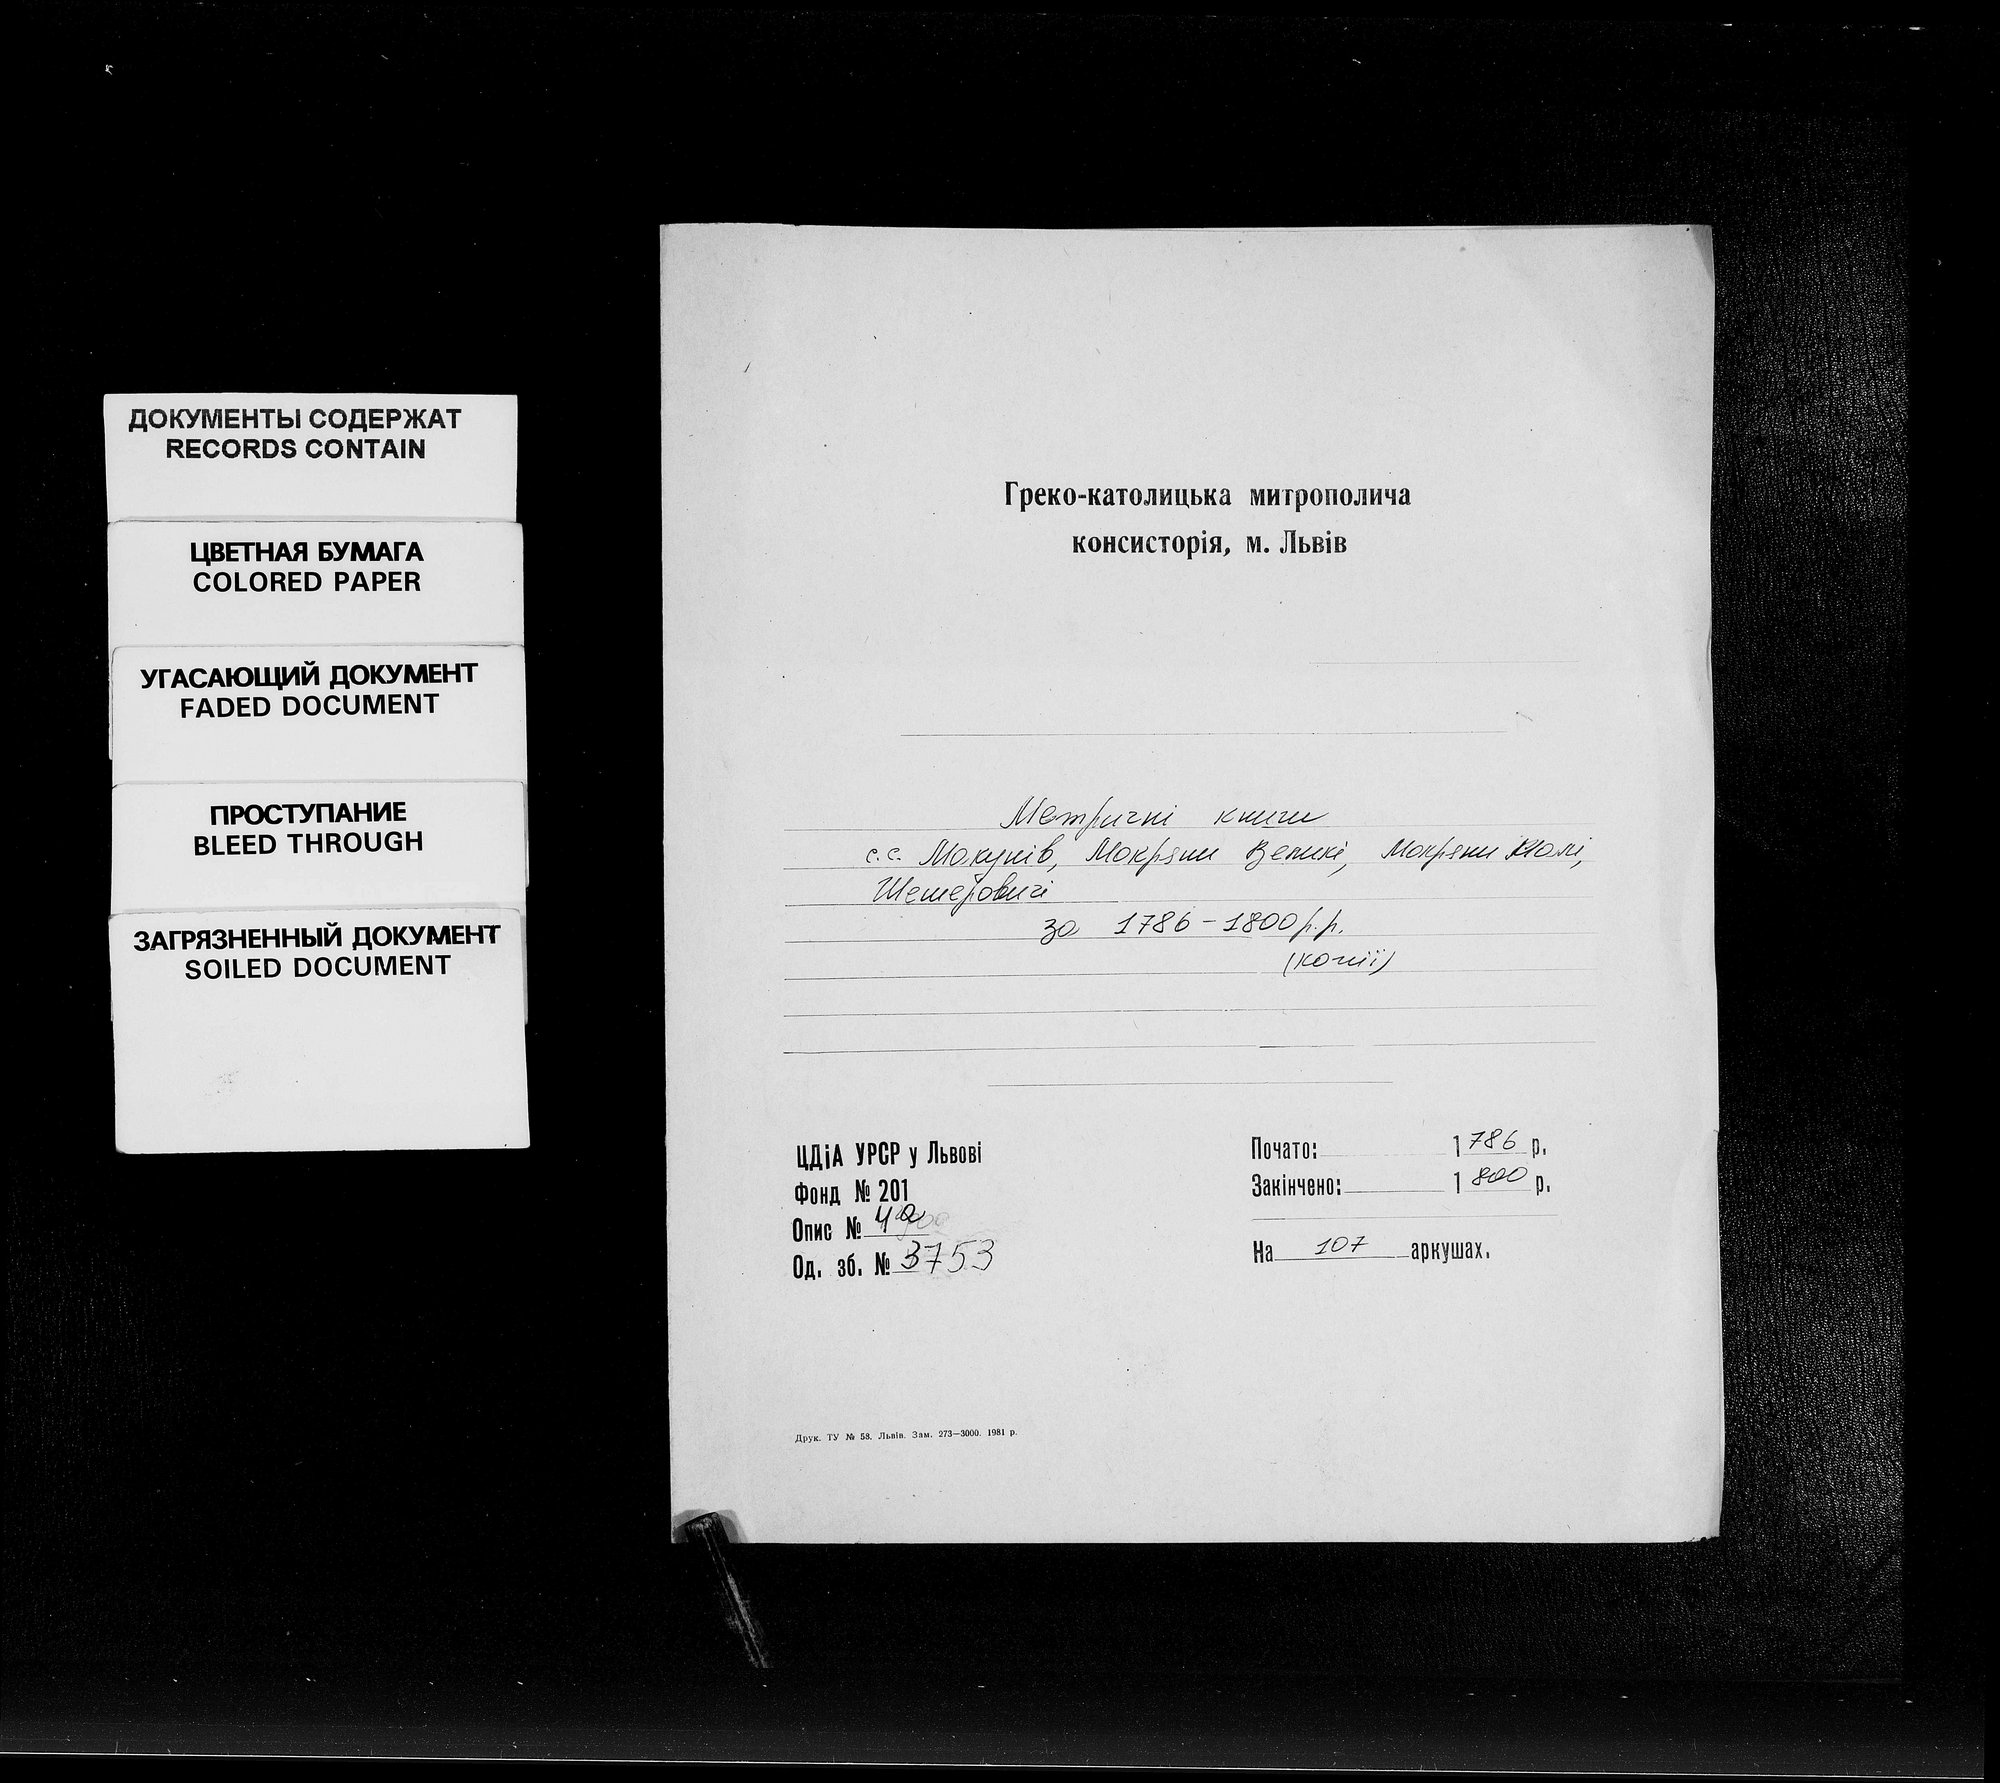 ДОКУМЕНТЫ СОДЕРЖАТ
RECORDS CONTAIN
ЦВЕТНАЯ БУМАГА
COLORED PAPER
УГАСАЮЩИЙ ДОКУМЕНТ
FADED DOCUMENT
ПРОСТУПАНИЕ
BLEED THROUGH
ЗАГРЯЗНЕННЫЙ ДОКУМЕНТ
SOILED DOCUMENT
Греко-католицька митрополича
консисторія, м. Львів
Метричні книги
с.с. Макунів, Мокряни Великі, Мокряни Малі,
Шешеровичі
за 1786-1800 р.р.
(копії)
ЦДіА УРСР у Львові
Фонд № 201
Опис № 4а
Од. зб. № 3753
Почато: 1786 р.
Закінчено: 1800 р.
На 107 аркушах.
Друк. ТУ № 58. Львів. Зам. 273—3000. 1981 р.